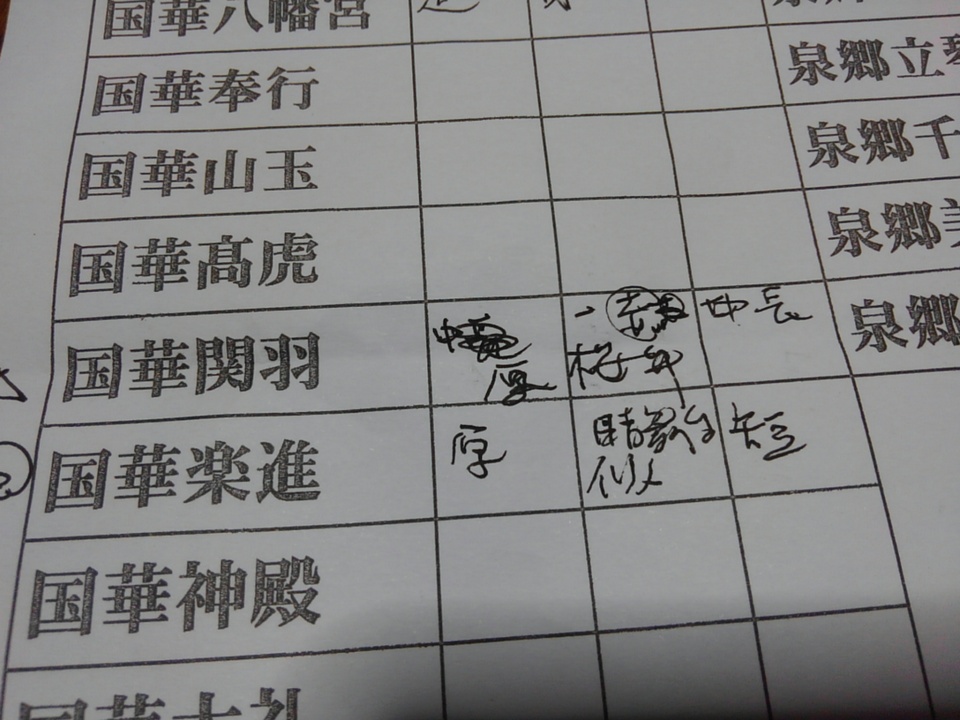 国華八幡宮
国華奉行 泉郷立
国華山玉 泉郷千
国華高虎 泉郷美
国華関羽 中 厚 中長 泉郷
国華楽進 厚 晴 似 短
国華神殿
国華大礼